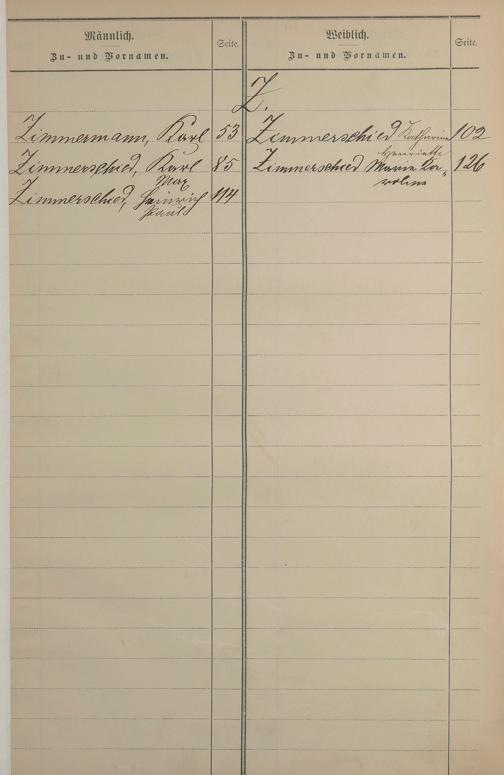 Männlich.
Zu- und Vornamen.
Seite.
Weiblich.
Zu- und Vornamen.
Seite.
Z.
Zimmermann, Karl 53
Zimmerschied, Karl 85
Max
Zimmerschied, Heinrich 114
Paul
Zimmerschied Katharina 102
Henriette
Zimmerschied Marie Ka- 126
roline